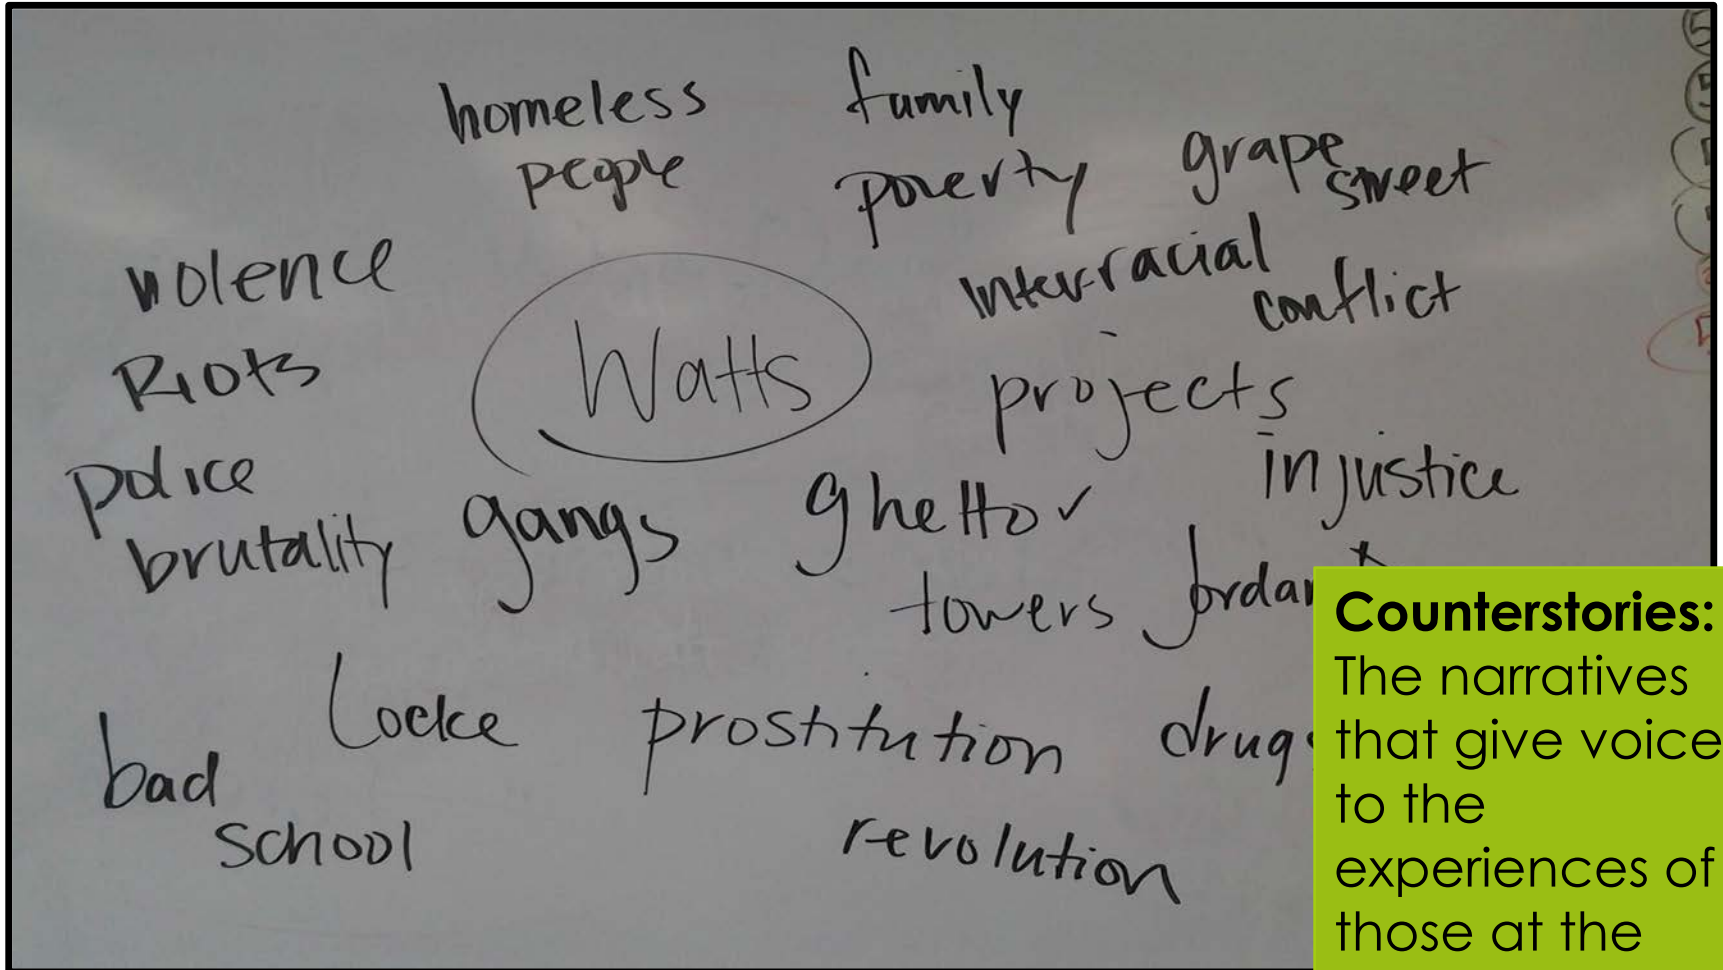 homeless
people
family
poverty
grape
street
violence
Riots
Watts
inter-racial
conflict
projects
injustice
police
brutality
gangs
ghetto
towers
Jordan
Locke
prostitution
drugs
bad
school
revolution
Counterstories:
The narratives
that give voice
to the
experiences of
those at the